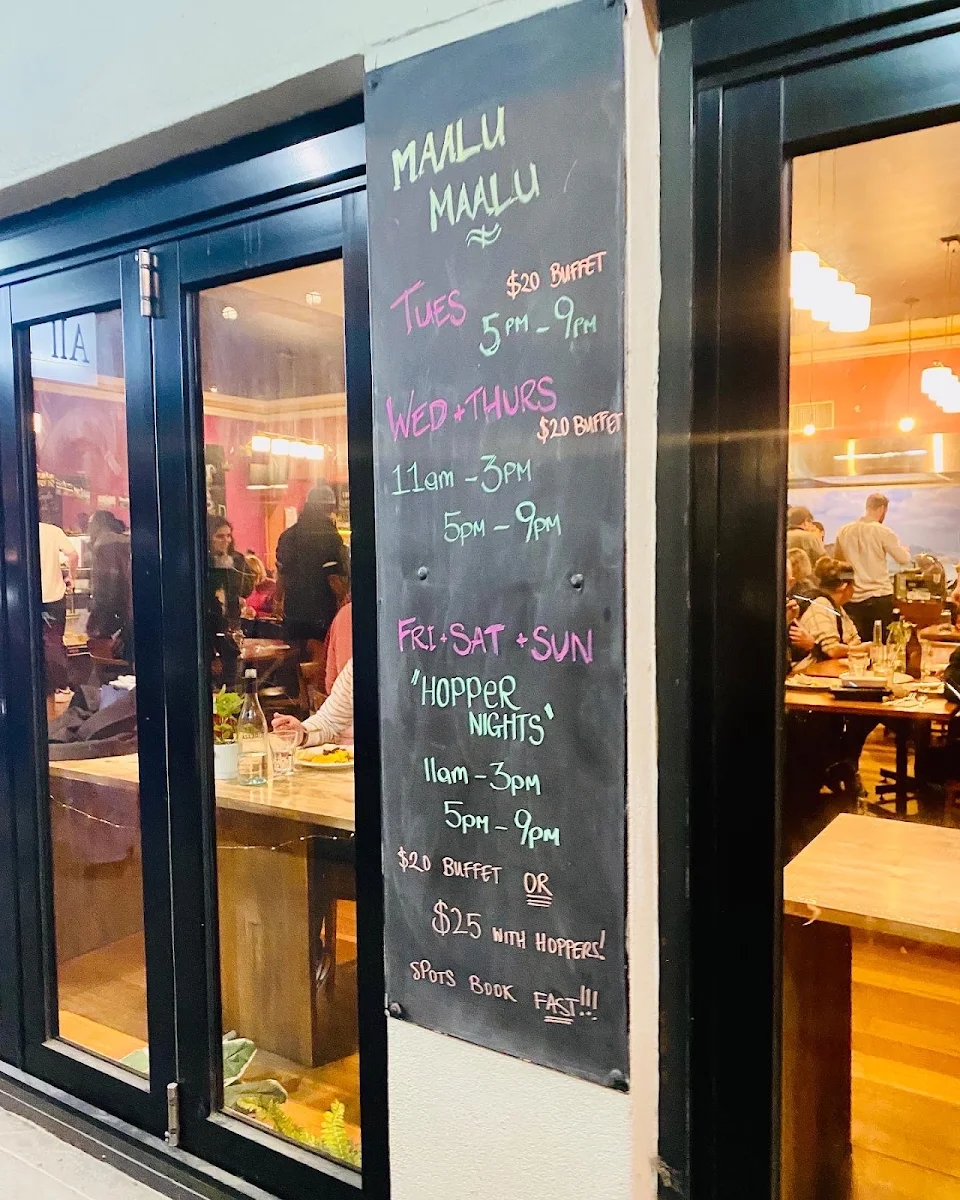 MAALU
MAALU
TUES $20 BUFFET
5PM - 9PM
WED + THURS
$20 BUFFET
11am - 3PM
5PM - 9PM
FRI + SAT + SUN
"HOPPER
NIGHTS"
11am - 3PM
5PM - 9PM
$20 BUFFET OR
$25 WITH HOPPERS!
SPOTS BOOK FAST!!!